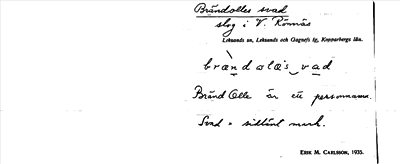 Brändolles svad
slog i V. Rönnäs
Leksands sn, Leksands och Gagnefs tg, Kopparbergs län.
Bränd Olle är ett personnamn.
Svad = sidlänt mark.
ERIK M. CARLSSON, 1935.